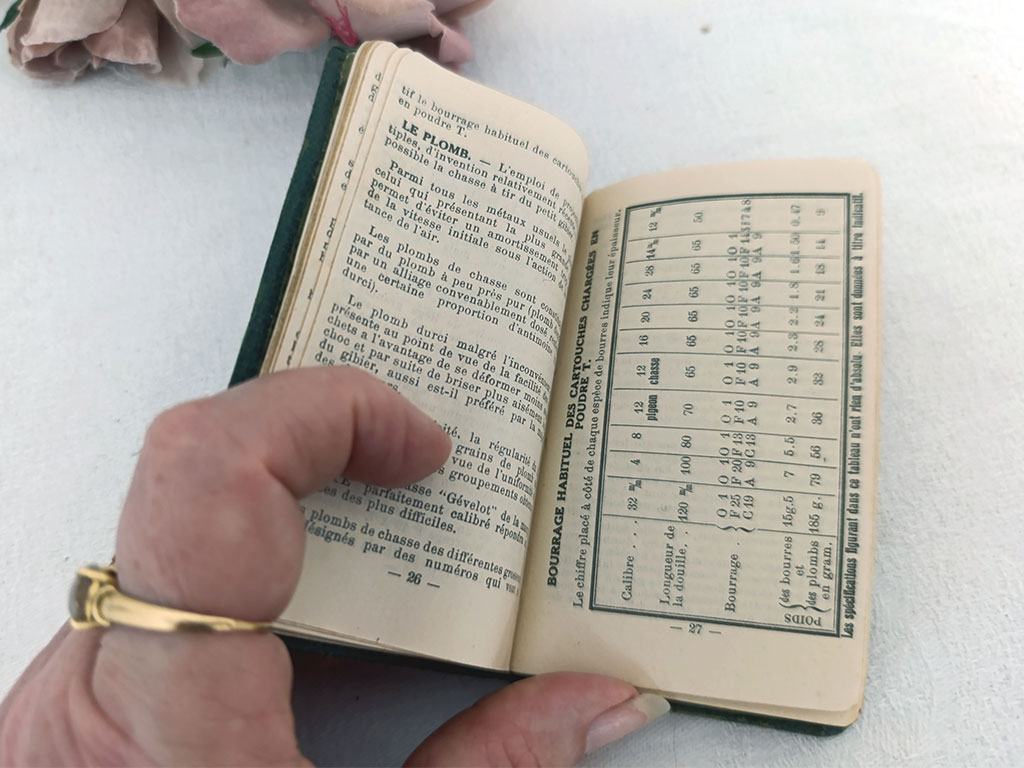 tif le bourrage habituel des cartouches
en poudre T.
LE PLOMB. — L'emploi de
tiples, d'invention relativement
possible la chasse à tir du petit gibier
Parmi tous les métaux usuels, le
celui qui présentant la plus
permet d'éviter un amortissement
de la vitesse initiale sous l'action de
tance de l'air.
Les plombs de chasse sont
par du plomb à peu près pur (plomb
par un alliage convenablement dosé
une certaine proportion d'antimoine
durci).
Le plomb durci malgré l'inconvénient
présente au point de vue de la facilité des
chets a l'avantage de se déformer moins
choc et par suite de briser plus aisément
du gibier, aussi est-il préféré par la
des
la régularité
grains de plomb
vue de l'uniformité
groupements
"Gévelot" de la
parfaitement calibré répondre
des plus difficiles.
plombs de chasse des différentes
désignés par des numéros qui
— 26 —
BOURRAGE HABITUEL DES CARTOUCHES CHARGÉES EN
POUDRE T.
Le chiffre placé à côté de chaque espèce de bourres indique leur épaisseur.
Calibre . . . 32 m/m 4 8 12 pigeon 12 chasse 16 20 24 28 14 m/m 12 m/m
Longueur de la douille. . . 120 m/m 100 80 70 65 65 65 65 65 65 50
Bourrage . O 1 O 1 O 1 O 1 O 1 O 1 O 1 O 1 O 1 O 1
F 25 F 20 F 13 F 10 F 10 F 10 F 10 F 10 F 10
C 19 A 9 C 13 A 9 A 9 A 9 A 9 A 9 A 9
POIDS des bourres 15g.5 7 5.5 2.7 2.9 2.3 2.2 1.8 0.47
et
des plombs en gram. 185 g. 79 56 36 32 28 24 21 18 14 9
Les spécifications figurant dans ce tableau n'ont rien d'absolu. Elles sont données à titre indicatif.
— 27 —